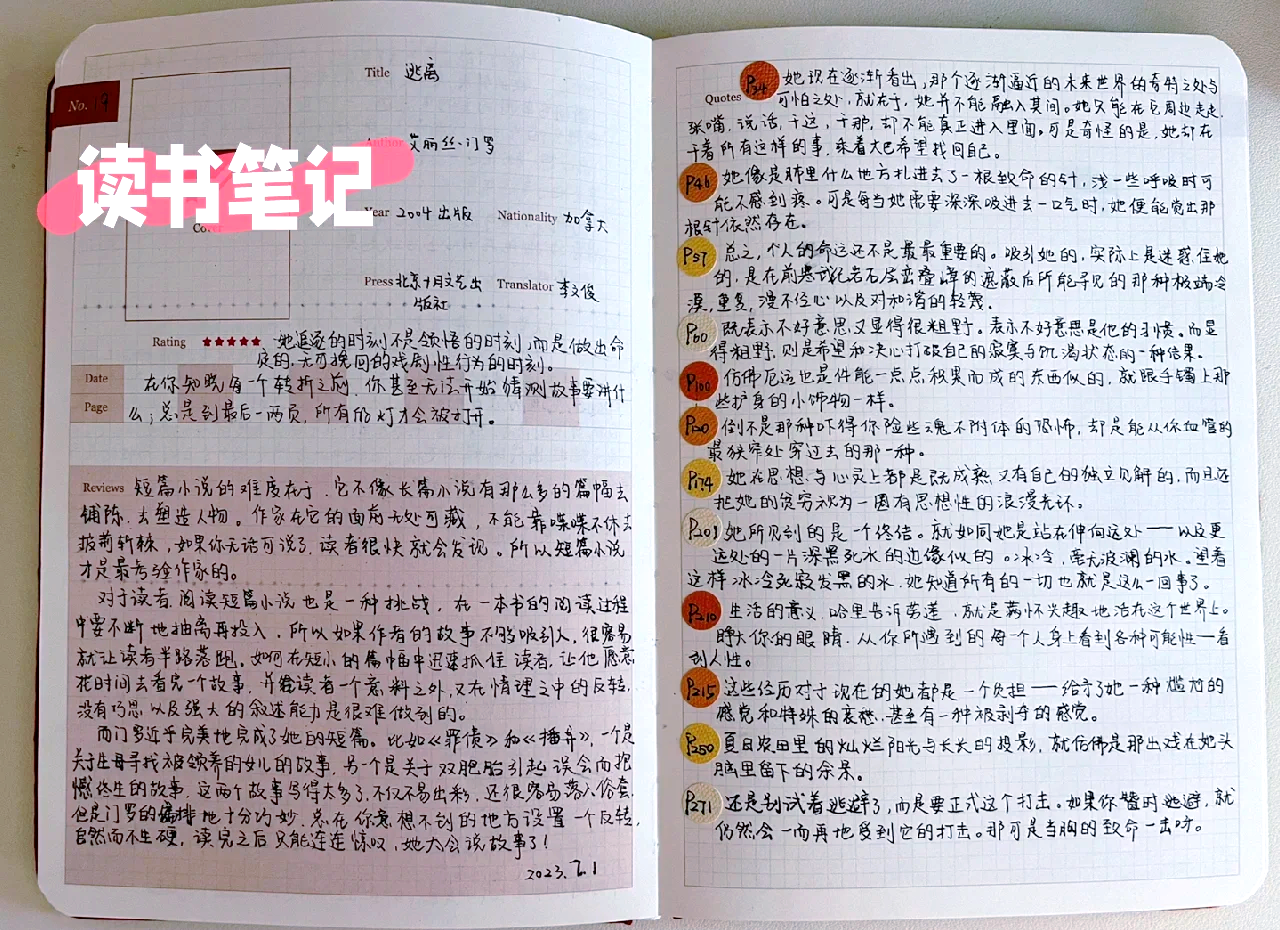 读书笔记
No. 19
Title 逃离
艾丽丝·门罗
Year 2004出版 Nationality 加拿大
Press 北京十月文艺出版社 Translator 李文俊
Cover
Rating ★★★★★ 她追逐的时刻不是领悟的时刻,而是做出命
定的、无可挽回的戏剧性行为的时刻。
Date 在你知晓每一个转折之前,你甚至无法开始猜测故事要讲什
Page 么;总是到最后一两页,所有的灯才会被打开。
Reviews 短篇小说的难度在于,它不像长篇小说有那么多的篇幅去
铺陈、去塑造人物。作家在它的面前无处可藏,不能靠喋喋不休去
披荆斩棘,如果你无话可说了,读者很快就会发现。所以短篇小说
才是最考验作家的。
对于读者,阅读短篇小说也是一种挑战,在一本书的阅读过程
中要不断地抽离再投入,所以如果作者的故事不够吸引人,很容易
就让读者半路落跑。如何在短小的篇幅中迅速抓住读者,让他愿意
花时间去看完一个故事,并给读者一个意料之外,又在情理之中的反转,
没有巧思以及强大的叙述能力是很难做到的。
而门罗近乎完美地完成了她的短篇。比如《罪债》和《播弄》,一个是
关于生母寻找被领养的女儿的故事,另一个是关于双胞胎引起误会而抱
憾终生的故事,这两个故事写得太多了,不仅不易出彩,还很容易落入俗套,
但是门罗的编排地十分巧妙,总在你意想不到的地方设置一个反转,
自然而不生硬,读完之后只能连连惊叹,她太会说故事了!
2023.7.1
Quotes P34 她现在逐渐看出,那个逐渐逼近的未来世界的奇特之处与
可怕之处,就在于,她并不能融入其间。她只能在它周边走走,
张嘴,说话,干这,干那,却不能真正进入里面。可是奇怪的是,她却在
干着所有这样的事,乘着大巴希望找回自己。
P46 她像是肺里什么地方扎进去了一根致命的针,浅一些呼吸时可
能不感到疼。可是每当她需要深深吸进去一口气时,她便能觉出那
根针依然存在。
P57 总之,个人的命运还不是最最重要的。吸引她的,实际上是迷惑住她
的,是在前寒武纪岩石层峦叠嶂的遮蔽后所能寻见的那种极端冷
漠,重复,漫不经心以及对和谐的轻蔑。
P60 既表示不好意思又显得很粗野。表示不好意思是他的习惯。而显
得粗野,则是希望和决心打破自己的寂寞与饥渴状态的一种结果。
P100 仿佛厄运也是件能一点点积累而成的东西似的,就跟手镯上那
些护身的小饰物一样。
P120 倒不是那种吓得你险些魂不附体的恐怖,却是能从你血管的
最狭窄处穿过去的那一种。
P174 她在思想与心灵上都是既成熟又有自己的独立见解的,而且还
把她的贫穷视为一圈有思想性的浪漫光环。
P201 她所见到的是一个终结。就如同她是站在伸向远处——以及更
远处的一片深黑死水的边缘似的。冰冷,毫无波澜的水。望着
这样冰冷死寂发黑的水,她知道所有的一切也就是这么一回事了。
P210 生活的意义,哈里告诉劳莲,就是满怀兴趣地活在这个世界上。
睁大你的眼睛,从你所遇到的每一个人身上看到各种可能性—看
到人性。
P215 这些经历对于现在的她都是一个负担——给予了她一种尴尬的
感觉和特殊的哀愁,甚至有一种被剥夺的感觉。
P250 夏日农田里的灿烂阳光与长长的投影,就仿佛是那出戏在她头
脑里留下的余晖。
P271 还是别试着逃避了,而是要正视这个打击。如果你暂时逃避,就
仍然会一而再地受到它的打击。那可是当胸的致命一击呀。